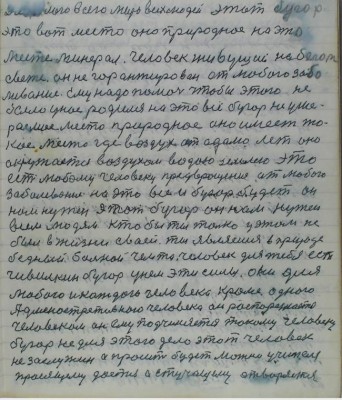 для всего мира всех людей этот бугор
это вот место оно природное на это
месте минерал. Человек живущий на белом
свете он не гарантирован от любого забо
ливание ему надо помоч чтобы этого не
было у нас родился на это всё бугор не уме-
раемое место природное оно имеет та-
кое место где воздух от адама лет оно
окружается воздухом водою землею это
есть любому человеку предвращение от любого
заболевание на это всем бугор будет он
нам нужен этот бугор он нам нужен
всем людям кто бы ты только у этом не
был в жизни своей ты явился в природе
бедный больной чем то, человек для тебя есть
чивилкин бугор у нем эти силы, они для
любого и каждого человека, кроме одного
Администретивного человека он распоряжается
человеком он ему подчиняется такому человеку
бугор не для этого дело этот человек
не заслужил а просить будет можно учителем
просящему дастся а стучащему отварятся